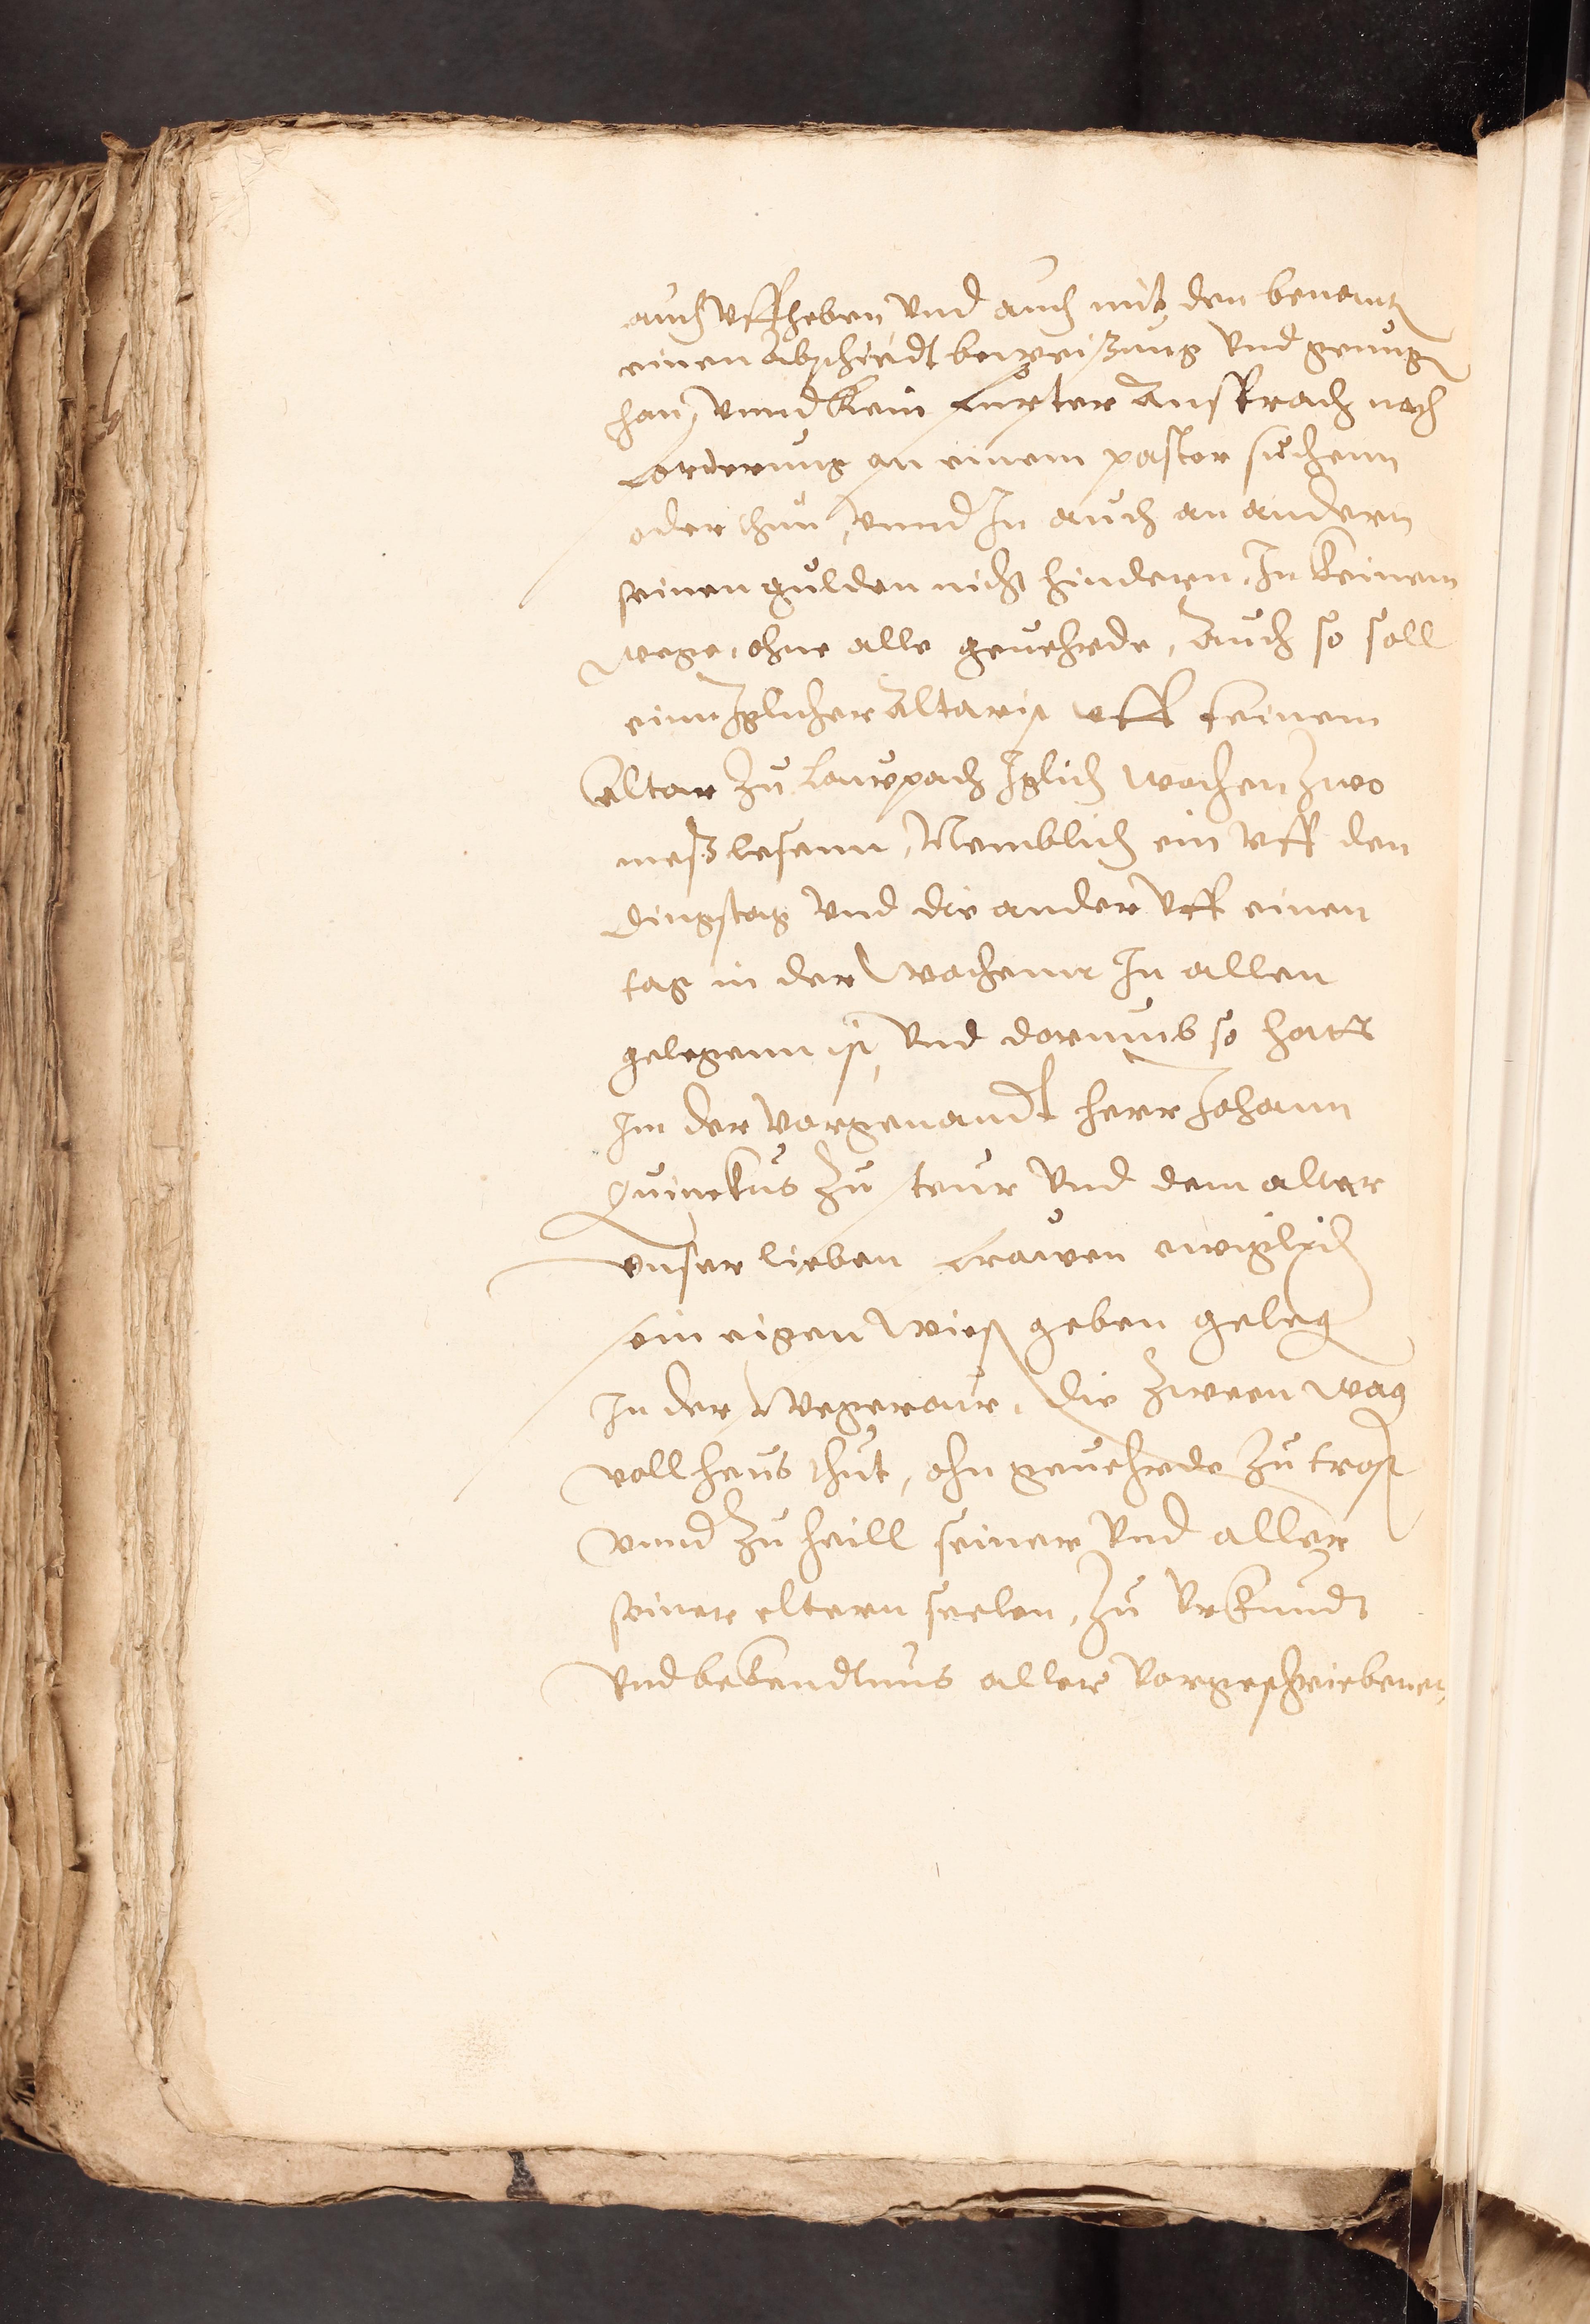 auch vffheben, Vnd auch mit den benant
einen Abschiedt beweißung Vnd genung
han, Vnnd kein furter Ansprach noch
forderung an einem pastor suchenn
oder thun, Vnnd In auch an andern
seinen gulden nicht hindern, In keinem
wege, ohne alle geuehrde, Auch so soll
einn Iglicher Altarist vff seinem
Altar Zu Laurpach Iglich wochen Zwo
meß lesenn, Nemblich ein vff den
Dingstag Vnd die ander Vff einen
tag in der Wochenn Im allen
gelegenn ist, Vnd darumb so hatt
Im der Vorgenandt Herr Johann
Quinckus Zu steur Vnd dem altar
Vnser lieben frawen ewiglich
sein eigen Wieß geben gelegen
In der Wegeraue, die Zween wag
voll heus thut, ohn geuehrde Zu trost
vnnd Zu heill seiner Vnd aller
seiner eltern seelen, Zu Vrkundt
Vnd bekendtnus aller Vorgeschriebener,